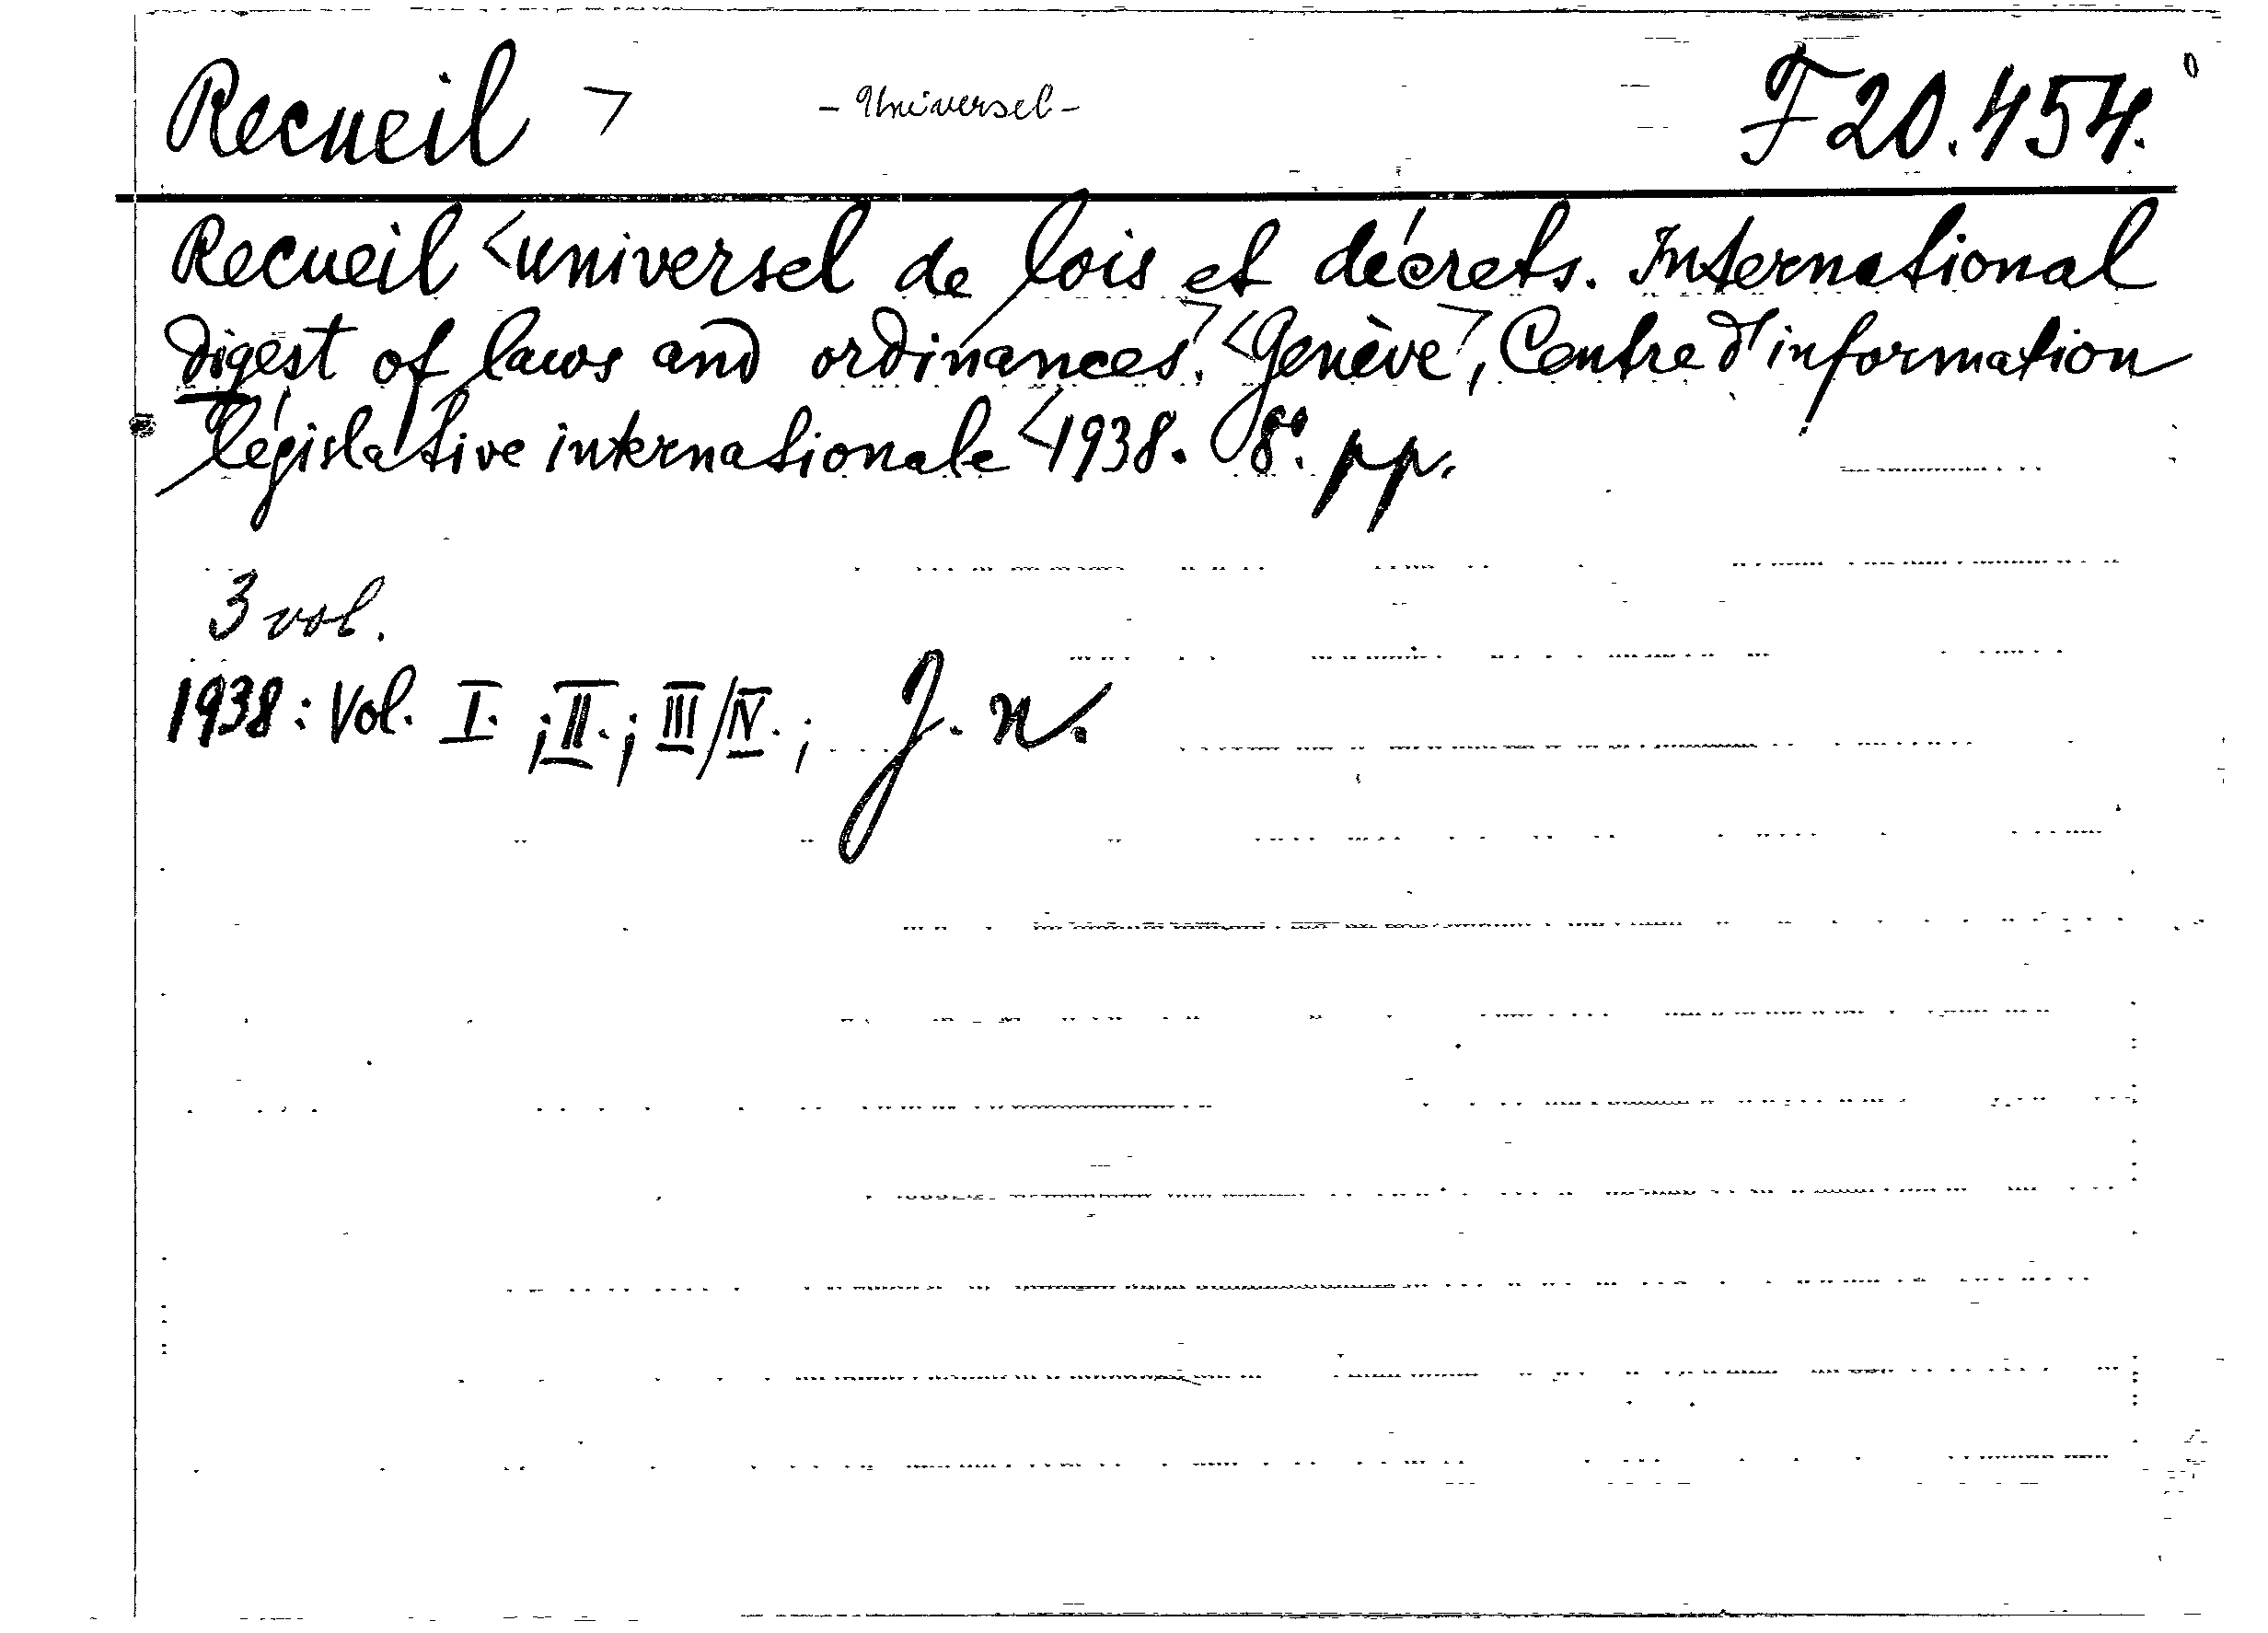 Recueil > - Universel - F 20.454.
Recueil <universel de lois et décrets. International
digest of laws and ordinances>. <Genève>, Centre d'information
législative internationale <1938. 8°. pp.
3 vol.
1938: Vol. I. ; II. ; III/IV. ; J. n.